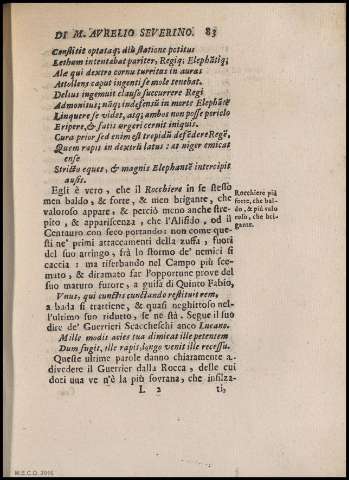 DI M. AVRELIO SEVERINO. 83
Constitit optataq; diù statione potitus
Lethum intentabat pariter, Regiq; Elephātiq;
Alæ qui dextro cornu turritus in auras
Attollens caput ingenti se mole tenebat.
Delius ingemuit clauso succurrere Regi
Admonitus; nāq; indefensū in morte Elephātē
Linquere se videt, atq; ambos non posse periclo
Eripere, & fatis urgeri cernit iniquis.
Cura prior sed enim est trepidū defēdere Regē,
Quem rapit in dextrū latus: at niger emicat
ense
Stricto eques, & magnis Elephantē intercipit
ausis.
Egli è vero, che il Rocchiere in se stesso
men baldo, & forte, & men brigante, che
valoroso appare, & perciò meno anche stre-
pito, & appariscenza, che l'Alfido, od il
Centauro con seco portando: non come que-
sti ne' primi attraccamenti della zuffa, fuori
del suo arringo, frà lo stormo de' nemici si
caccia: ma riserbando nel Campo più sce-
mato, & diramato far l'opportune prove del
suo maturo furore, a guisa di Quinto Fabio,
Vnus, qui cunctis cunctando restituit rem,
a bada si trattiene, & quasi neghittoso nel-
l'ultimo suo ridutto, se ne stà. Segue il suo
dire de' Guerrieri Scaccheschi anco Lucano.
Mille modis acies tua dimicat ille petentem
Dum fugit, ille rapit, longo venit ille recessu.
Queste ultime parole danno chiaramente a-
divedere il Guerrier dalla Rocca, delle cui
doti una ve n'è la più sovrana, che infilza-
L 2 ti,
Rocchiere più
forte, che bal-
do, & più valo
roso, che bri-
gante.
M.E.C.D. 2016